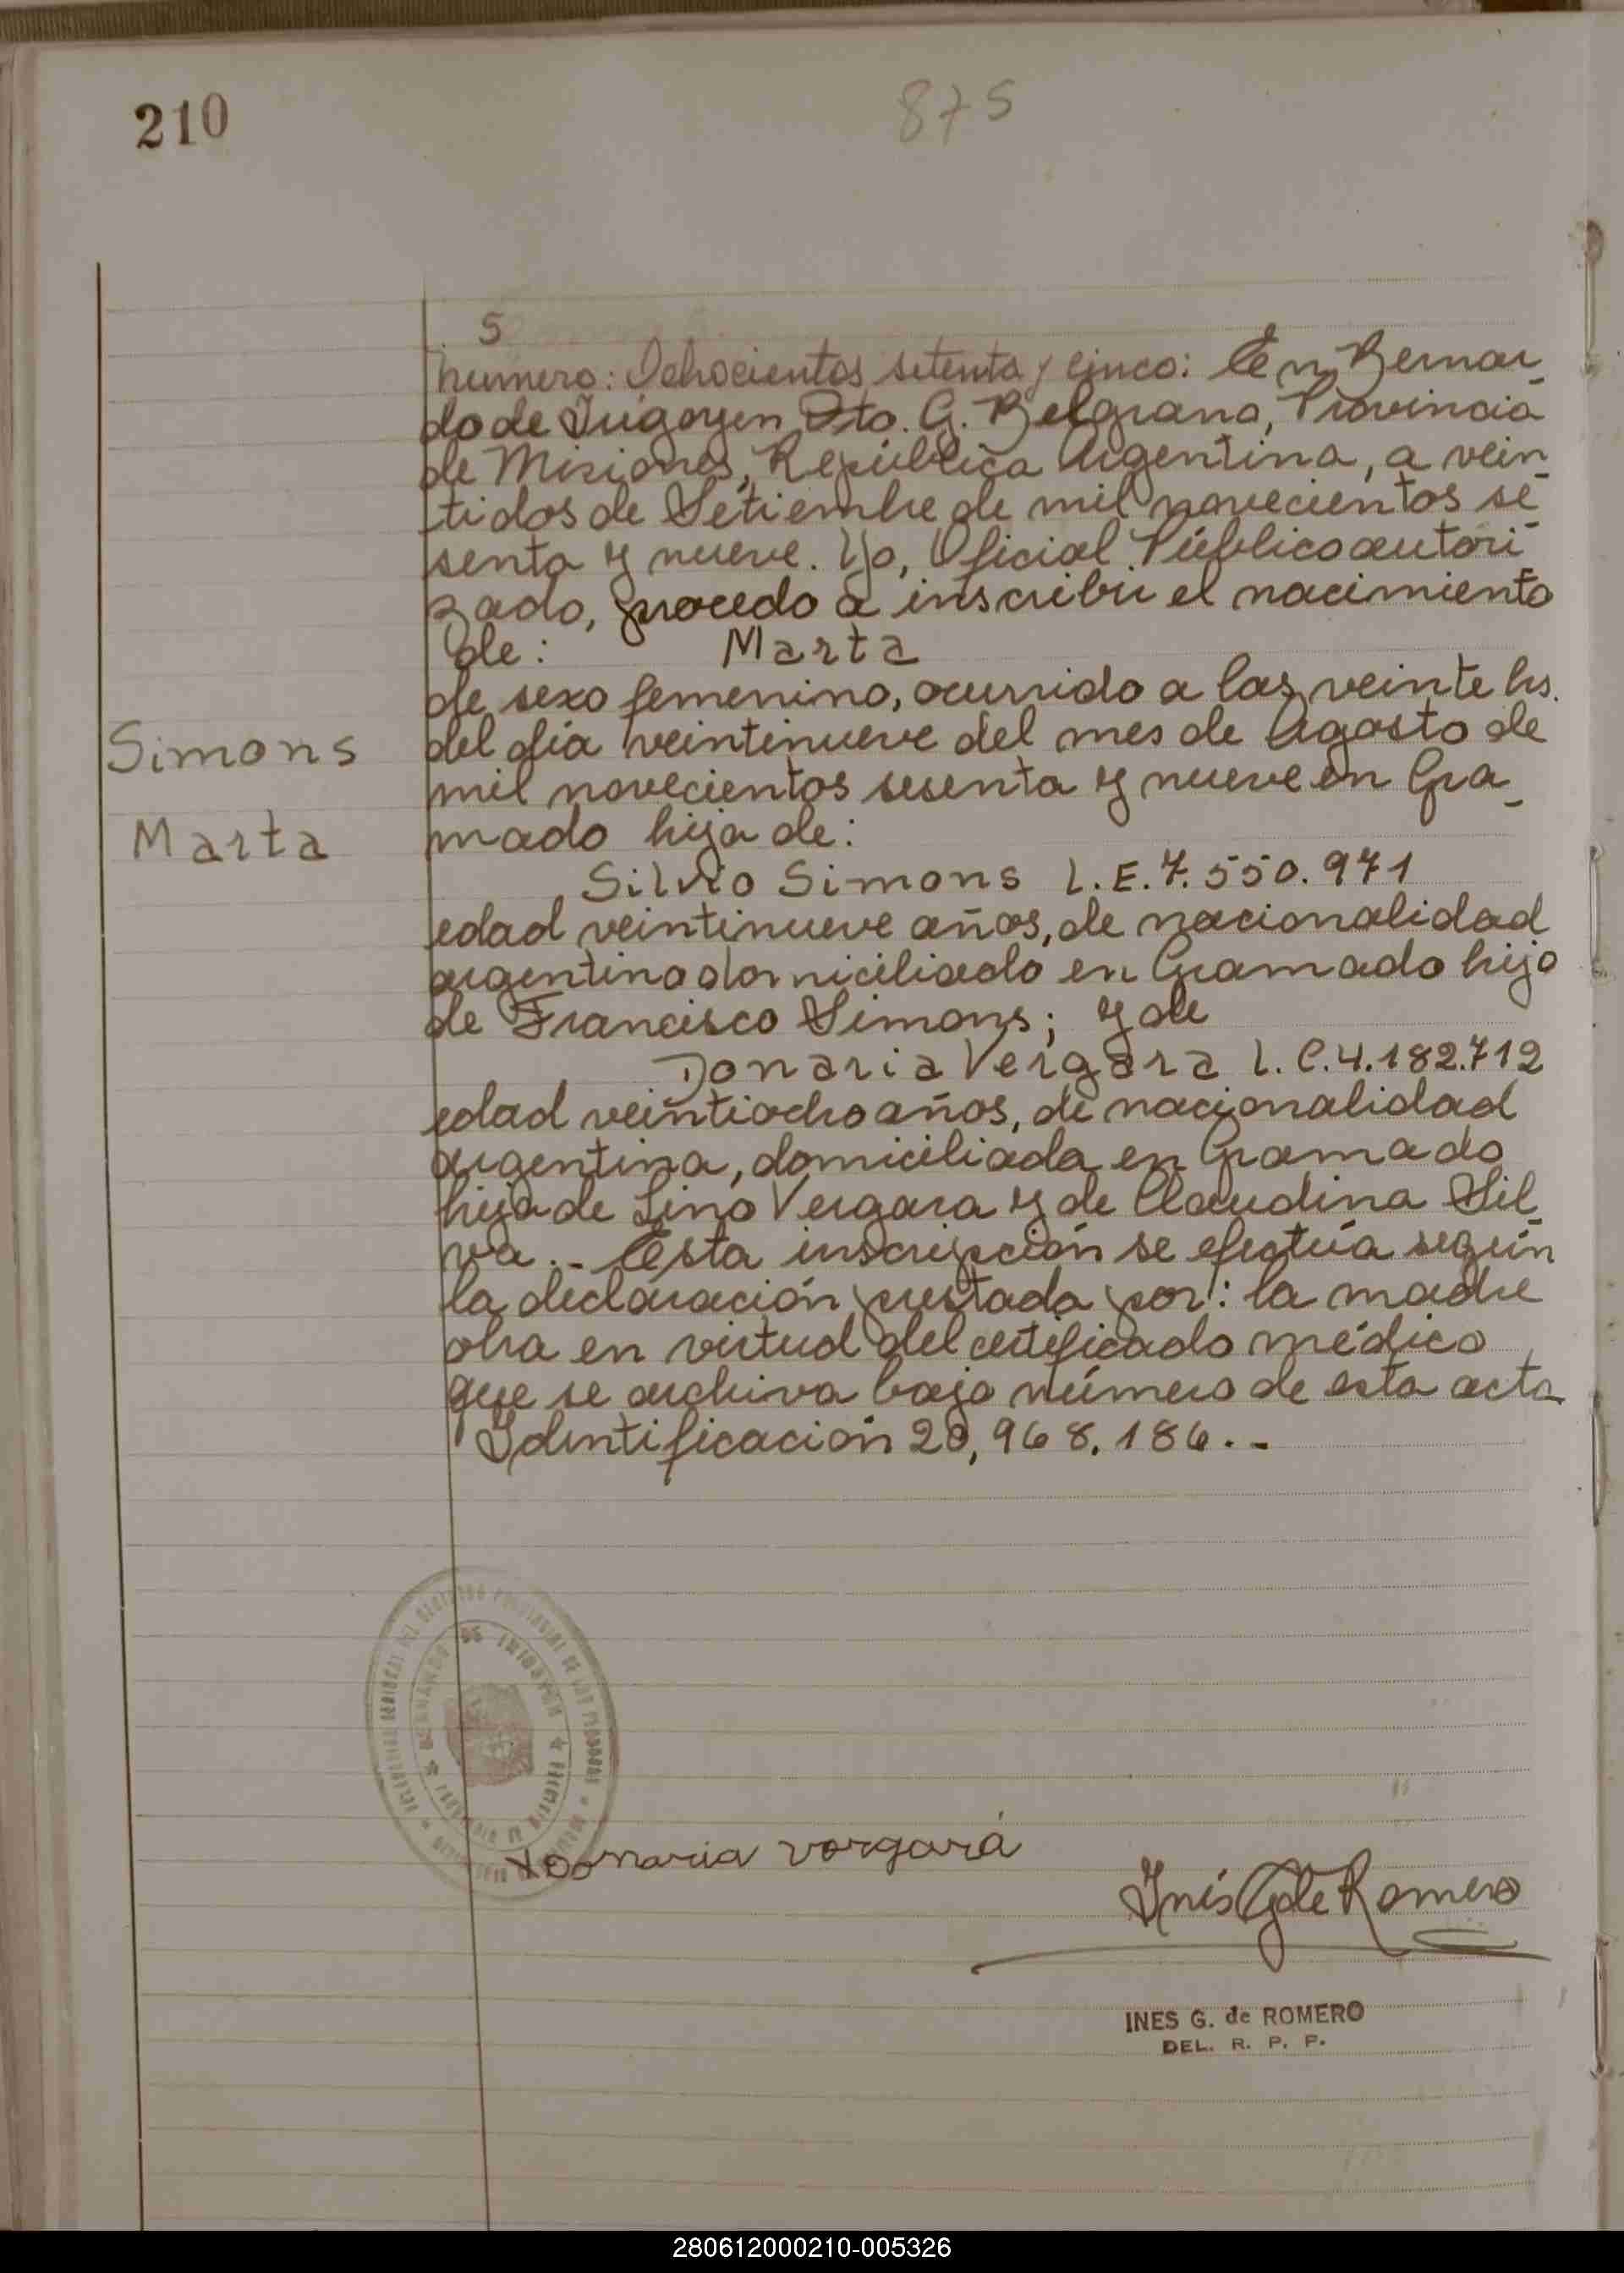 210
875
5
número: Ochocientos setenta y cinco: En Bernar
do de Irigoyen Dto. G. Belgrano, Provincia
de Misiones, República Argentina, a vein
tidos de Setiembre de mil novecientos se
senta y nueve. Yo, Oficial Público autori
zado, procedo a inscribir el nacimiento
de: Marta
de sexo femenino, ocurrido a las veinte hs.
del día veintinueve del mes de Agosto de
Simons
mil novecientos sesenta y nueve en Gra_
Marta
mado hija de:
Silvio Simons L.E.7.550.971
edad veintinueve años, de nacionalidad
argentino domiciliado en Gramado hijo
de Francisco Simons; y de
Donaria Vergara L.C.4.182.712
edad veintiocho años, de nacionalidad
argentina, domiciliada en Gramado
hija de Lino Vergara y de Claudina Sil_
va.- Esta inscripción se efectúa según
la declaración prestada por: la madre
obra en virtud del certificado médico
que se archiva bajo número de esta acta
Identificación 20,968.186.-
Donaria vergara
Inés G de Romero
INES G. de ROMERO
DEL. R. P. P.
280612000210-005326